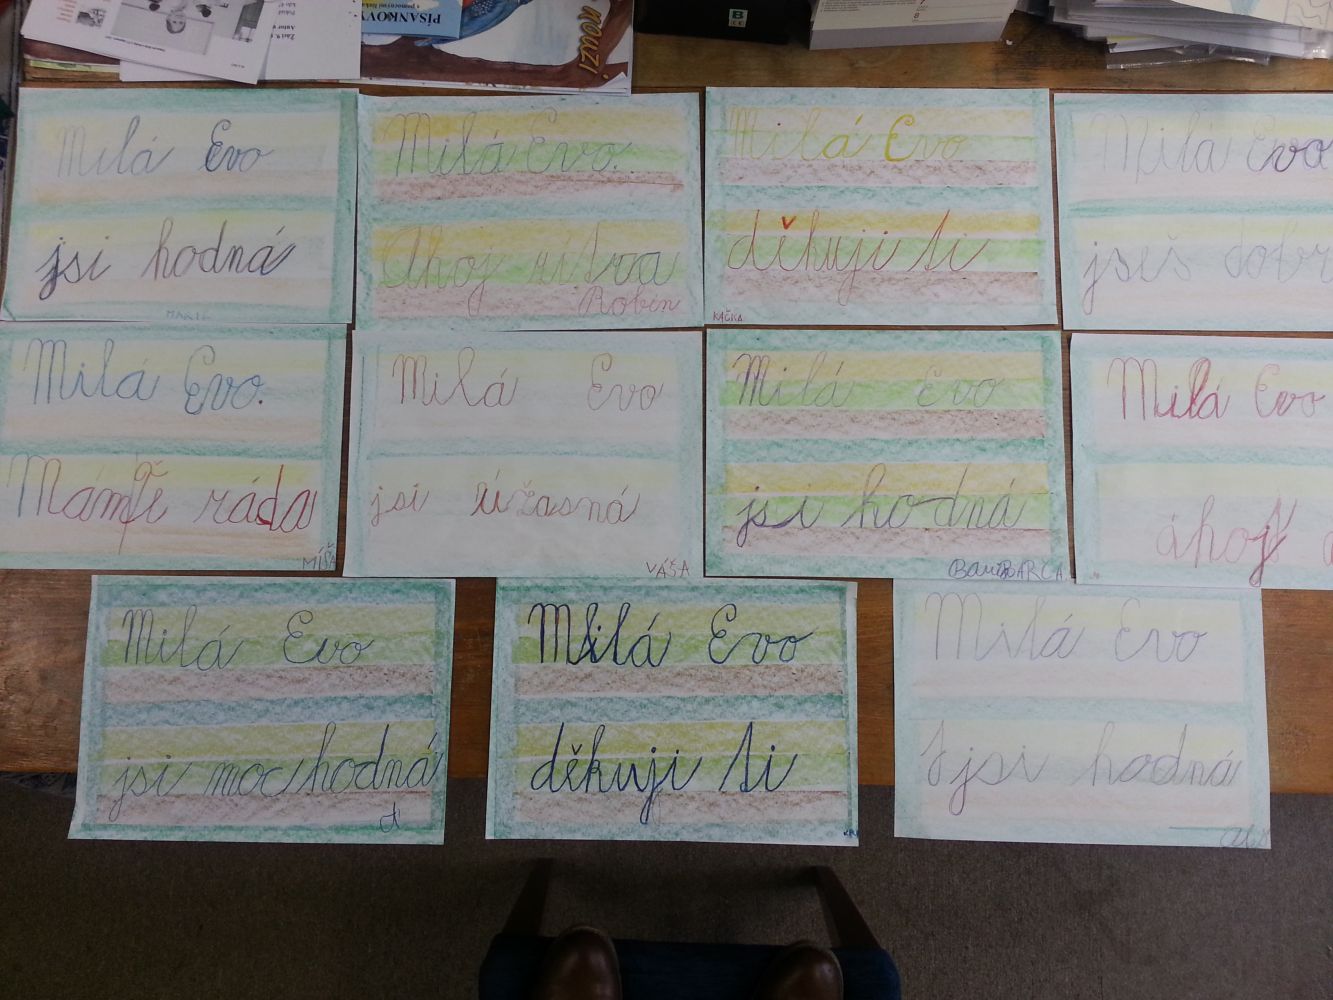 PÍSANKOVÝ
kouzl
Milá Evo
jsi hodná
Milá Evo.
Ahoj
Robin
Milá Evo
děkuji ti
KAČKA
Milá Evo
jseš dobr
Milá Evo.
Mám tě ráda
MÍŠA
Milá Evo
jsi úžasná
VÁŠA
Milá Evo
jsi hodná
BARČA
Milá Evo
áhoj
Milá Evo
jsi moc hodná
A
Milá Evo
děkuji ti
Milá Evo
jsi hodná